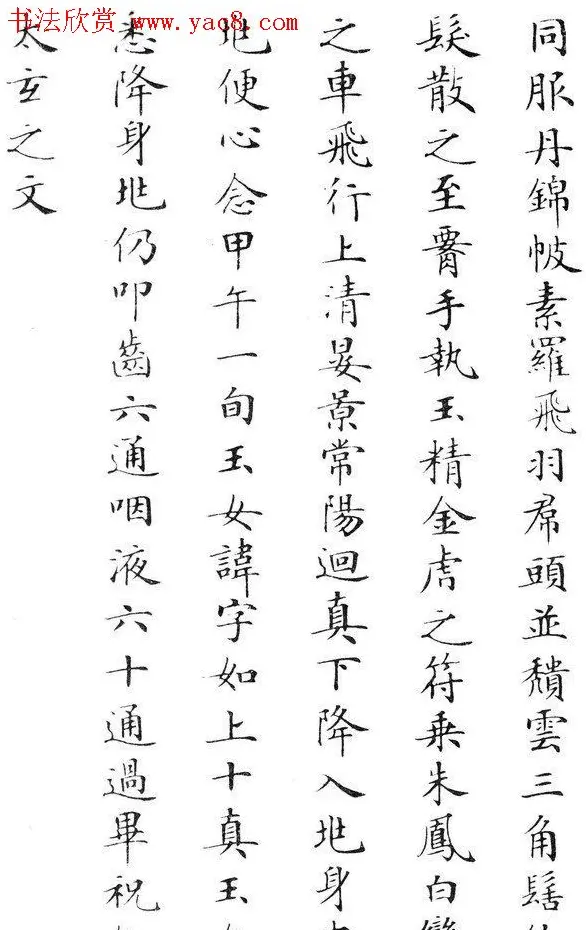 书法欣赏 www.yac8.com
同服丹錦帔素羅飛羽帬頭並頹雲三角髻
髮散之至𦝫手執玉精金虎之符乗朱鳳白鸞
之車飛行上清晏景常陽迴真下降入坔身
坔便心念甲午一旬玉女諱字如上十真玉
悉降身坔仍叩齒六通咽液六十通過畢祝
太玄之文